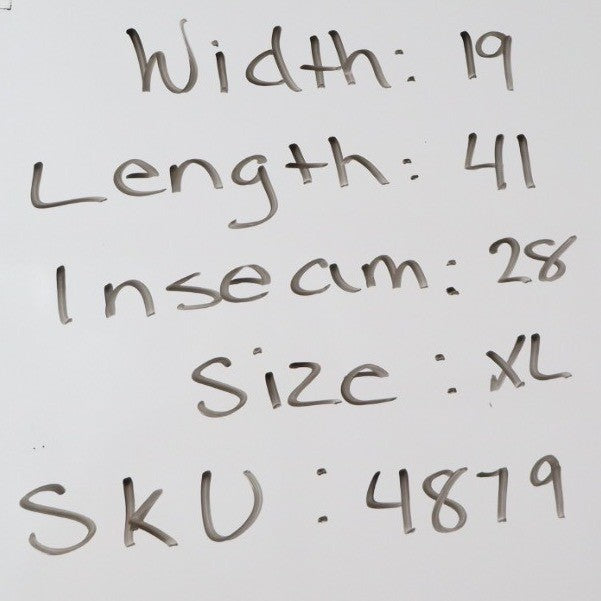 Width: 19
Length: 41
Inseam: 28
Size: XL
SKU: 4879